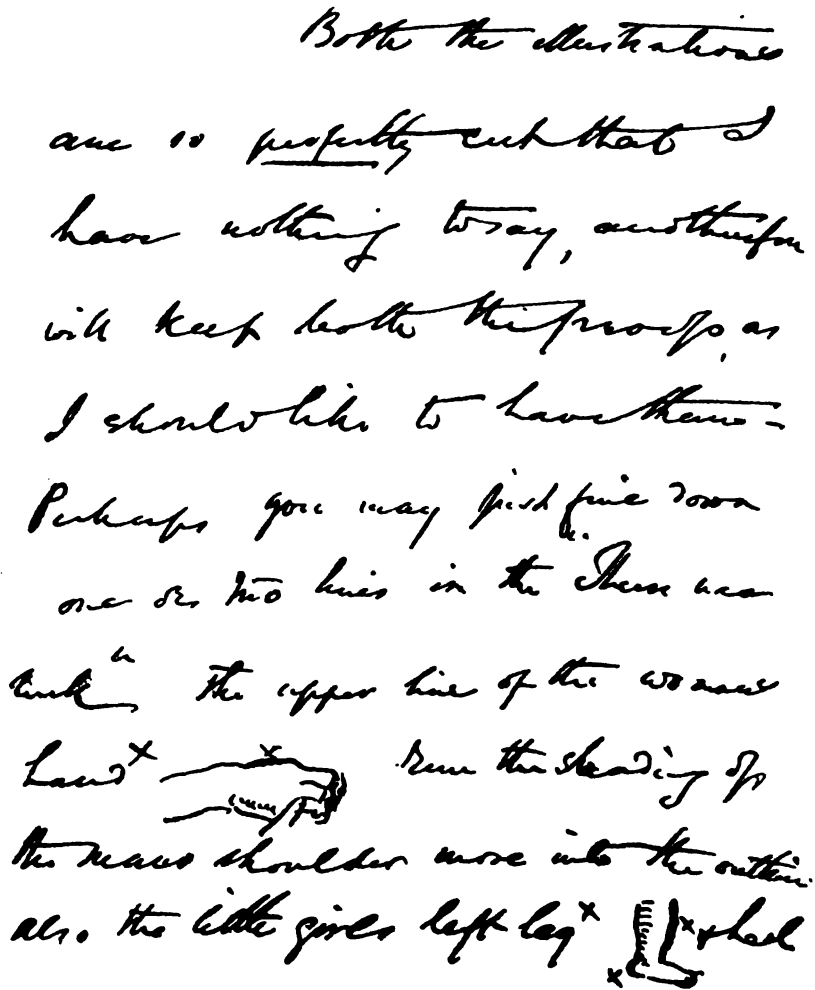 Both the illustrations
are so perfectly cut that I
have nothing to say, and therefore
will keep both the proofs, as
I should like to have them –
Perhaps you may just fine down
one or two lines in the "
" The upper line of the womans
hand x x Run the shading of
the mans shoulder more into the outline
also the little girls left leg x x x heel
x